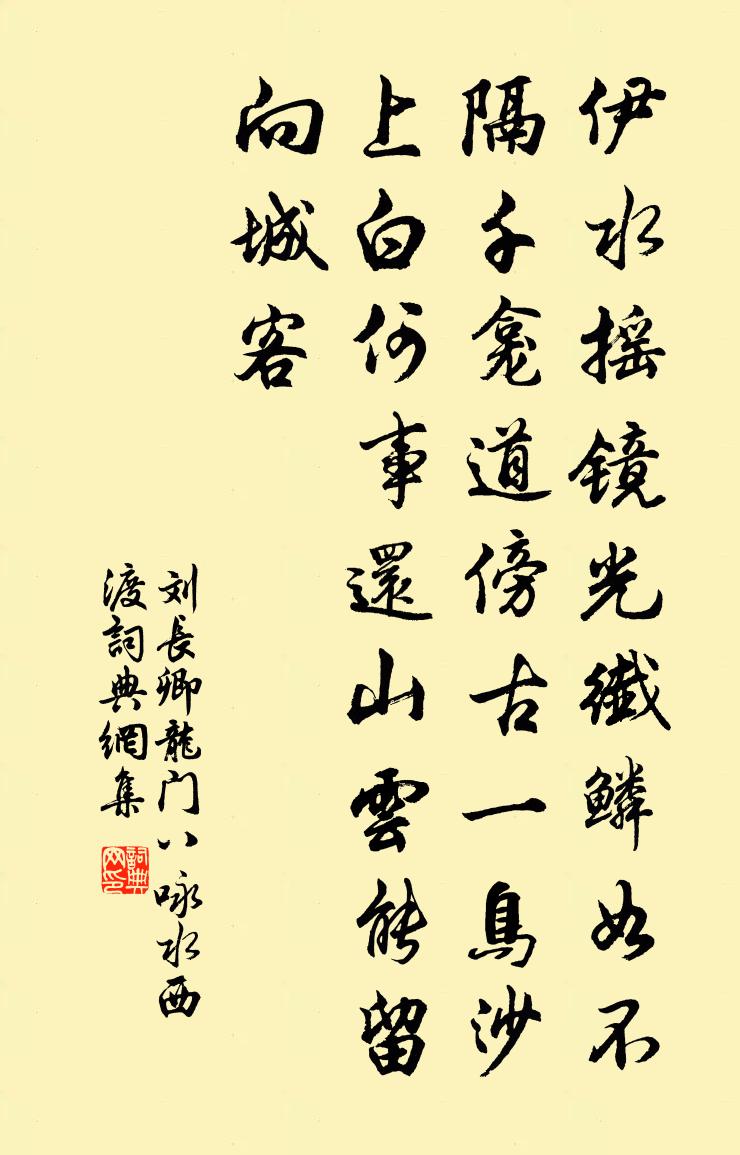 伊水摇镜光纖鳞如不
隔千龛道傍古一鳥沙
上白何事還山雲能留
向城客
刘長卿龍门八咏水西
渡詞典網集
詞典
网印